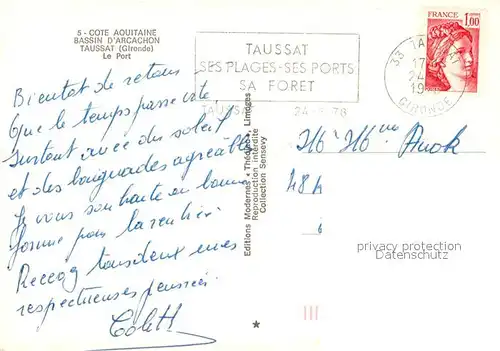 5 - COTE AQUITAINE
BASSIN D'ARCACHON
TAUSSAT (Gironde)
Le Port
TAUSSAT
SES PLAGES-SES PORTS
SA FORET
TAUSSAT 24-8-78
33 TAUSSAT
17
24
19
GIRONDE
FRANCE
1,00
Bientot de retour
Que le temps passe vite
Surtout avec du soleil
et des baignades agréables
Je vous souhaite en bonne
forme pour la rentrée
Recevez tous deux mes
respectueuses pensées
Editions Modernes « Théojac », Limoges
Reproduction Interdite
Collection Sensevy
privacy protection
Datenschutz